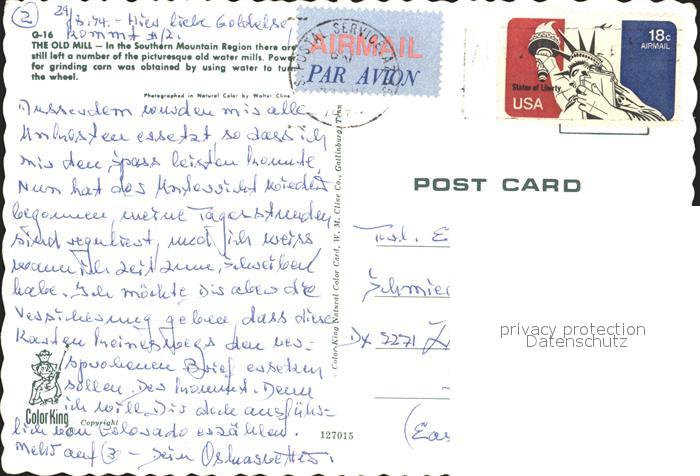 2
29/3.74. - Hier liebe Goldelse!
kommt #2.
G-16
THE OLD MILL — In the Southern Mountain Region there are
still left a number of the picturesque old water mills. Power
for grinding corn was obtained by using water to turn
the wheel.
Photographed in Natural Color by Walter Cline
Ausserdem wurden mir alle
Unkosten ersetzt so dass ich
mir den Spass leisten konnte.
Nun hat der Unterricht wieder
begonnen, meine Tagesstunden
sind reguliert, und ich weiss
wann ich Zeit zum Schreiben
habe. Ich möchte Dir aber die
Versicherung geben dass diese
Karten keineswegs den ver-
sprochenen Brief ersetzen
sollen. Der kommt. Denn
ich will Dir doch ausführ-
lich von Colorado erzählen.
Mehr auf 3 - Dein
Color King
Copyright
127015
Color King Natural Color Card, W. M. Cline Co., Gatlinburg, Tenn
AIRMAIL
PAR AVION
18c
AIRMAIL
Statue of Liberty
USA
POST CARD
Schmied
5271
privacy protection
Datenschutz